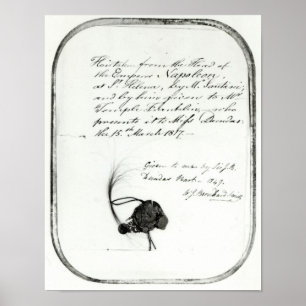 Hair taken from the Head of
the Emperor Napoleon,
at St Helena, by M.
and by him given to Mr
Temple who
presents it to Miss Dundas
the 15th March 1817.
Given to me by
Dundas 1849.